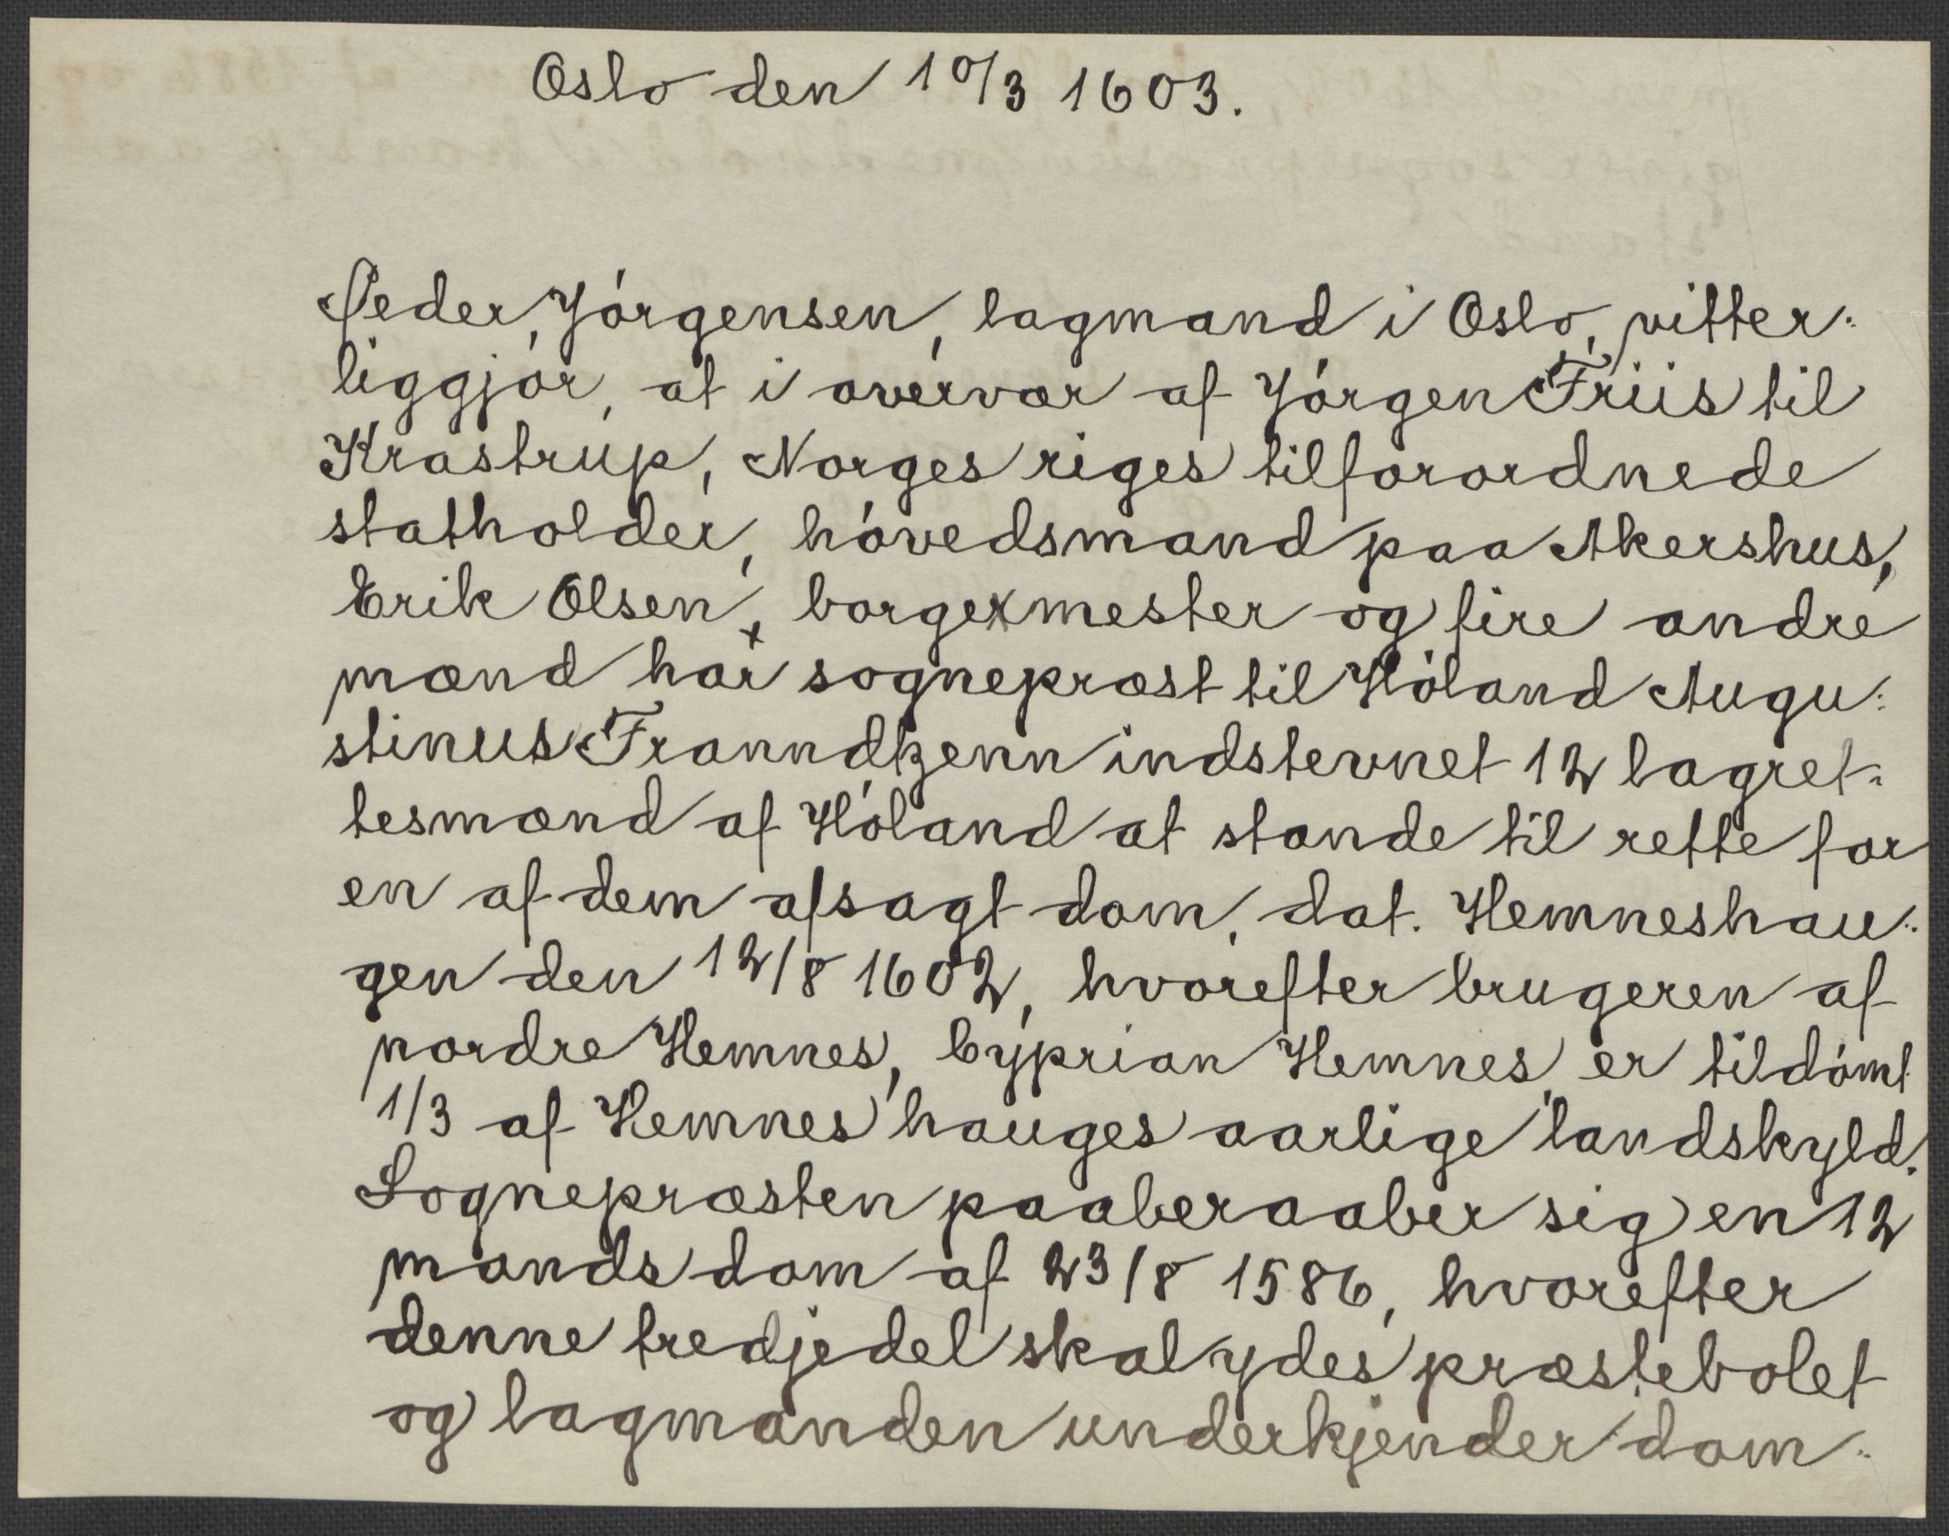 Oslo den 10/3 1603.
Peder Jórgensen, lagmand i Oslo, vitter-
liggjór, at i overvær af Jórgen Friis til
Krastrup, Norges riges tilforordnede
statholder, hóvedsmand paa Akershus,
Erik Olsen, borgermester og fire andre
mænd har sognepræst til Hóland Augu-
stinus Franndtzenn indstevnet 12 lagret-
tesmænd af Hóland at stande til rette for
en af dem afsagt dom, dat. Hemneshau-
gen den 12/8 1602, hvorefter brugeren af
nordre Hemnes, Cyprian Hemnes, er tildómt
1/3 af Hemneshauges aarlige landskyld.
Sognepræsten paaberaaber sig en 12
mands dom af 23/8 1586, hvorefter
denne tredjedel skal ydes præstebolet
og lagmanden underkjender dom-